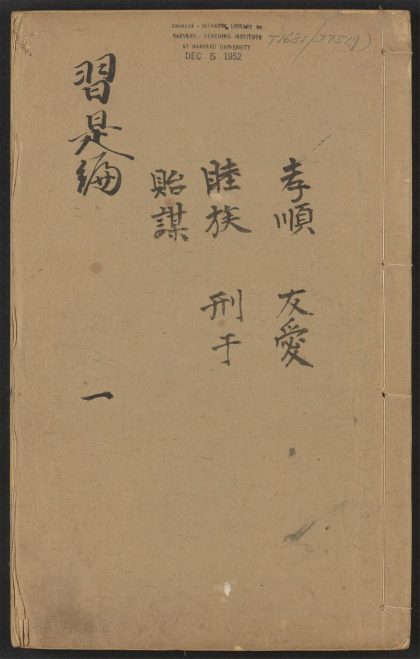 CHINESE - JAPANESE LIBRARY OF
HARVARD - YENCHING INSTITUTE
AT HARVARD UNIVERSITY
DEC 5 1952
孝順 友愛
睦族 刑于
貽謀
習是編 一